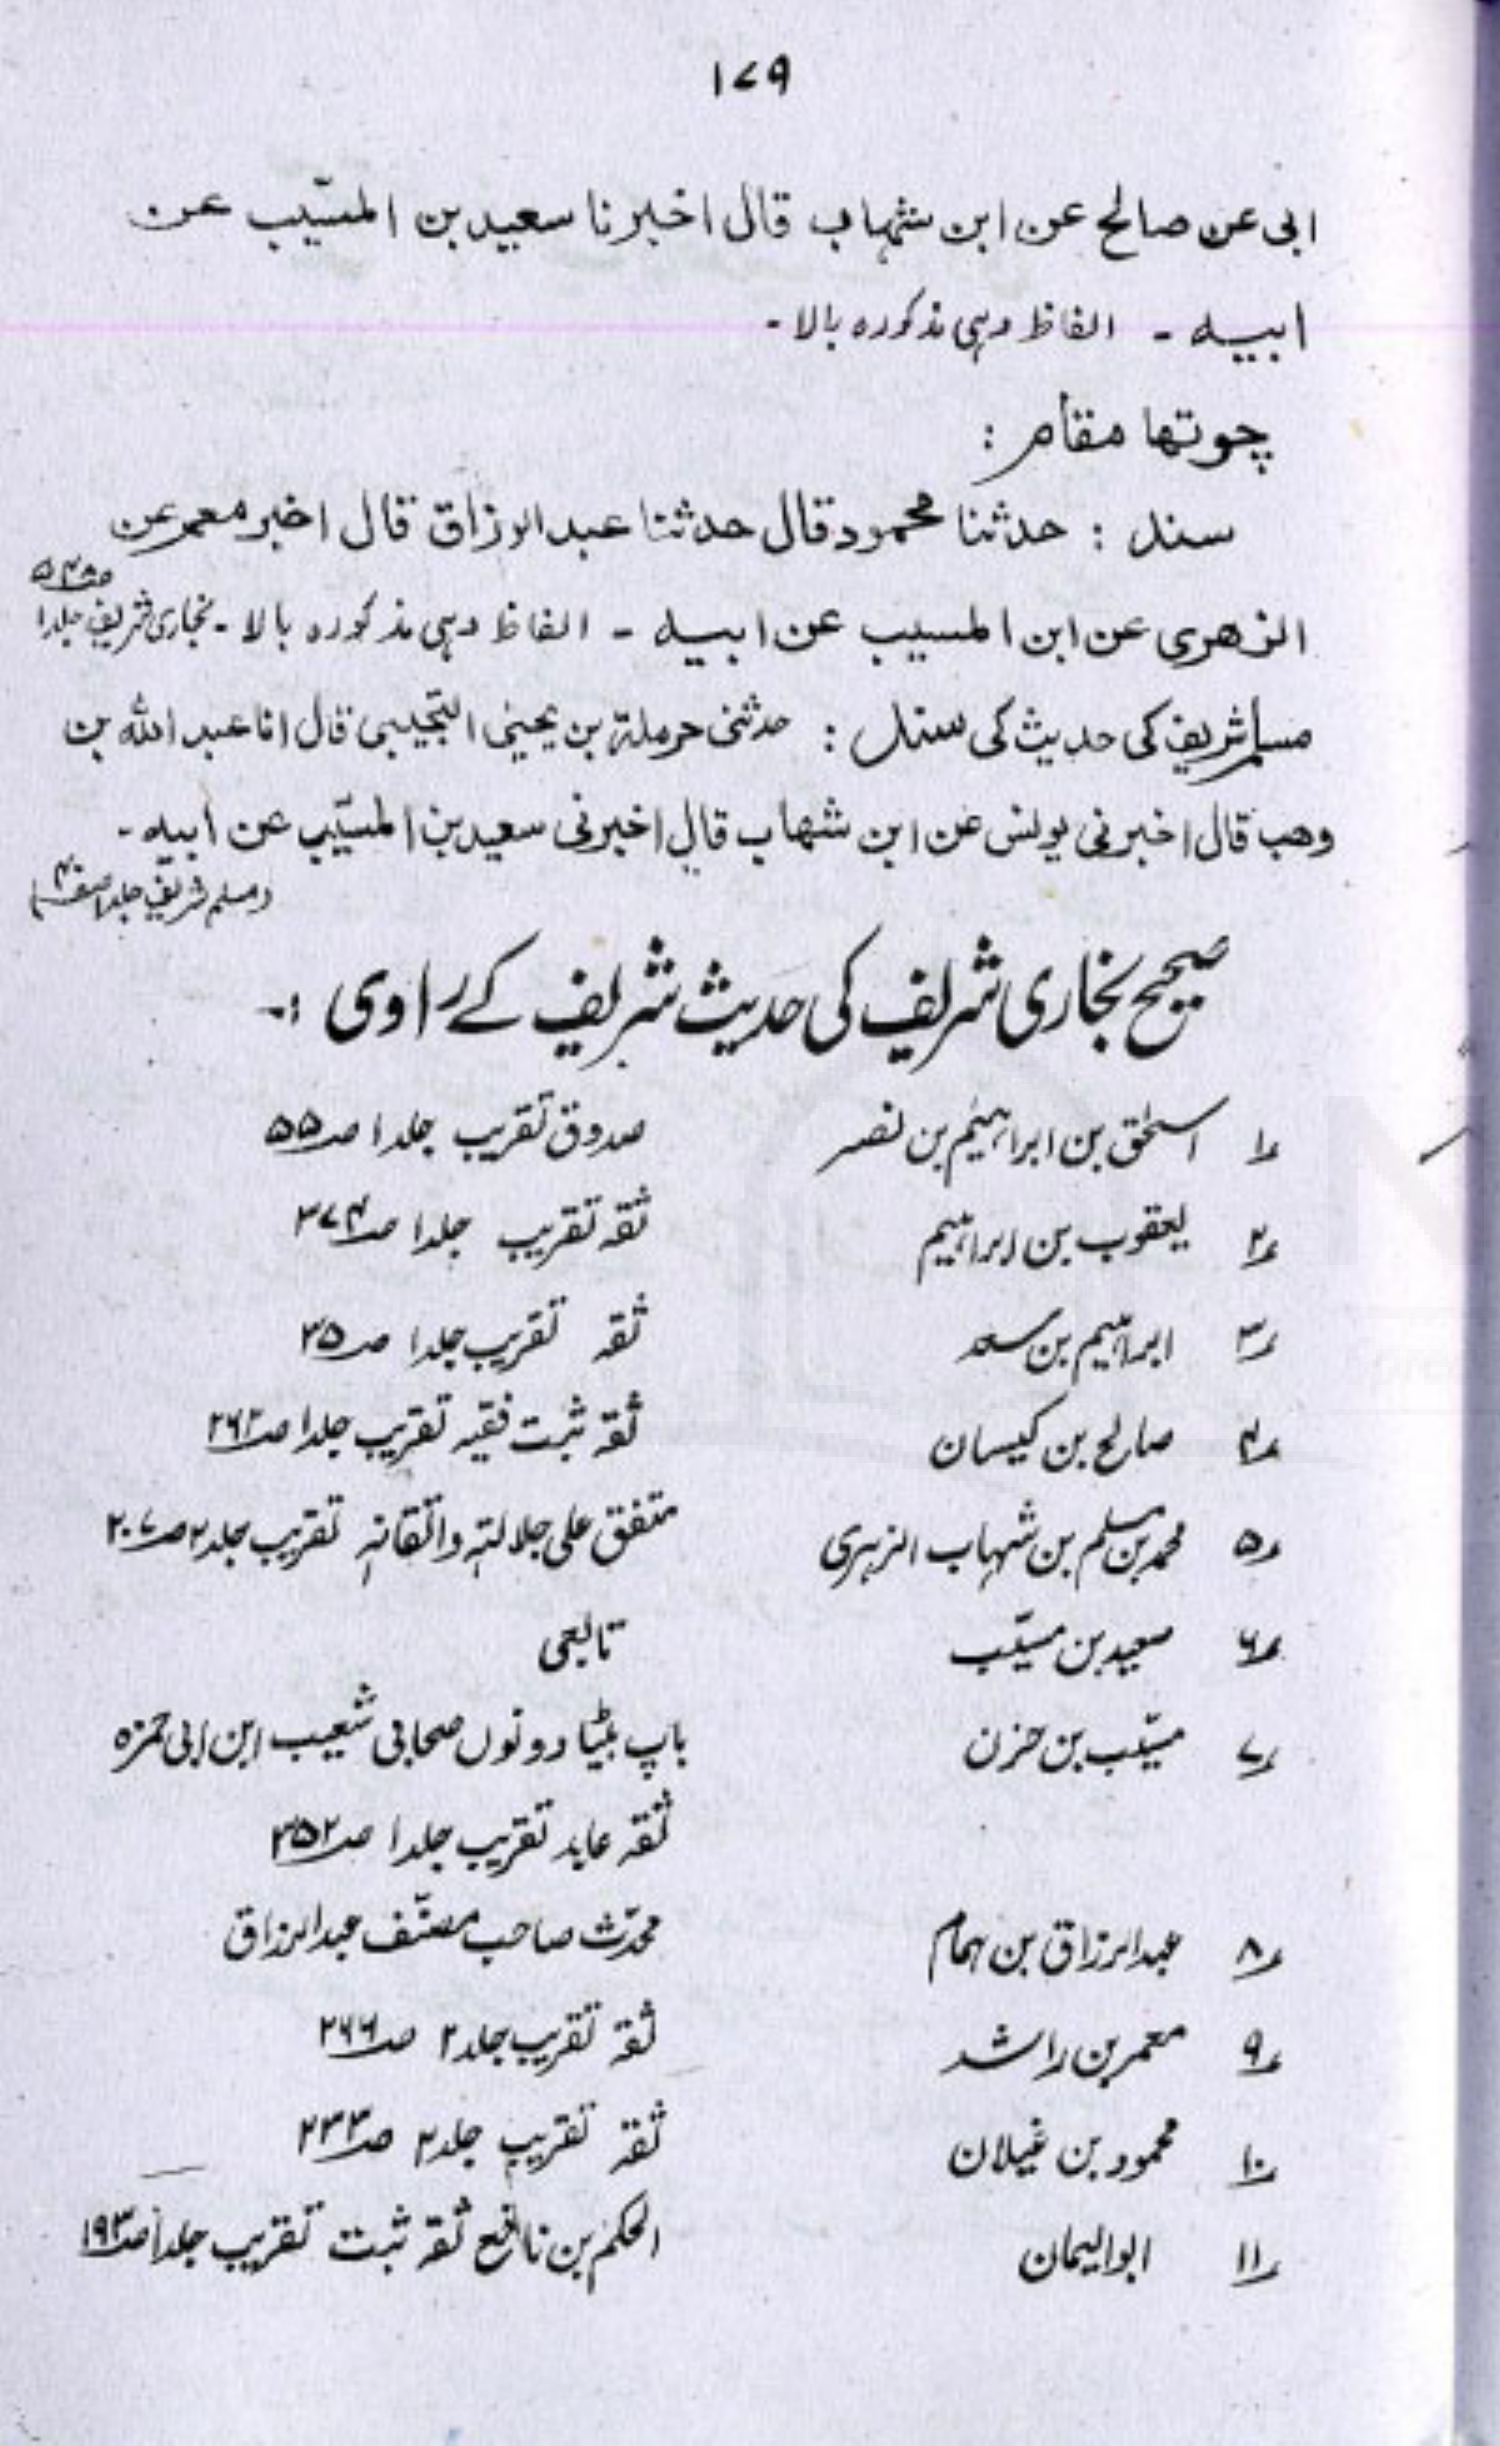 ۱۷۹
ابی عن صالح عن ابن شہاب قال اخبرنا سعید بن المسیّب عن
ابیہ ۔ الفاظ وہی مذکورہ بالا ۔
چوتھا مقام :
سند : حدثنا محمود قال حدثنا عبد الرزاق قال اخبر معمر عن
الزھری عن ابن المسیب عن ابیہ ۔ الفاظ وہی مذکورہ بالا ۔ بخاری شریف جلد ۱
مسلم شریف کی حدیث کی سند : حدثنی حرملۃ بن یحییٰ التجیبی قال انا عبد اللہ بن
وھب قال اخبرنی یونس عن ابن شھاب قال اخبرنی سعید بن المسیّب عن ابیہ ۔
مسلم شریف جلد ۱
صحیح بخاری شریف کی حدیث شریف کے راوی :۔
۱ اسحٰق بن ابراہیم بن نصر صدوق تقریب جلد ۱ صـ ۵۵
۲ یعقوب بن ابراہیم ثقہ تقریب جلد ۱ صـ ۳۷۴
۳ ابراہیم بن سعد ثقہ تقریب جلد ۱ صـ ۳۵
۴ صالح بن کیسان ثقہ ثبت فقیہ تقریب جلد ۱ صـ ۲۶۲
۵ محمد بن مسلم بن شہاب الزہری متفق علی جلالتہ واتقانہ تقریب جلد ۲ صـ ۲۰۷
۶ سعید بن مسیّب تابعی
۷ مسیّب بن حزن باپ بیٹا دونوں صحابی شعیب ابن ابی حمزہ
ثقہ عابد تقریب جلد ۱ صـ ۳۵۲
۸ عبد الرزاق بن ہمام محدّث صاحب مصنّف عبد الرزاق
۹ معمر بن راشد ثقہ تقریب جلد ۲ صـ ۲۶۶
۱۰ محمود بن غیلان ثقہ تقریب جلد ۲ صـ ۲۳۳
۱۱ ابوالیمان الحکم بن نافع ثقہ ثبت تقریب جلد ۱ صـ ۱۹۳